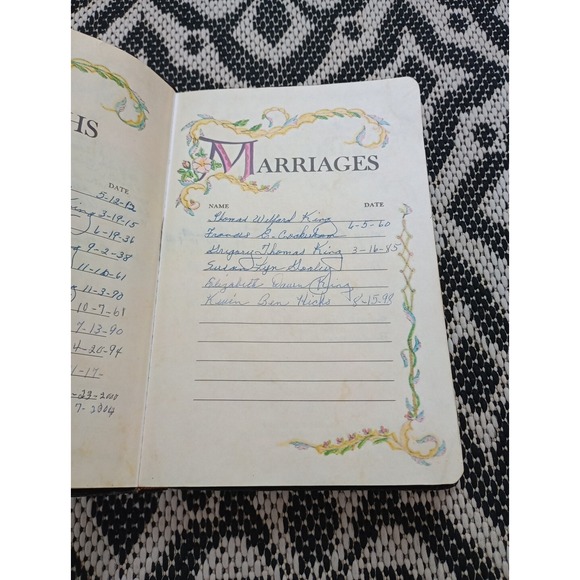 HS
DATE
5-12-12
3-19-15
6-19-36
9-2-38
11-10-61
11-3-90
10-7-61
7-13-90
4-20-94
1-17-
-23-2000
7-2004
MARRIAGES
NAME DATE
Thomas Wilford King
Frances E. 6-5-60
Gregory Thomas King 3-16-85
Susan Lyn
Elizabeth King
Kevin Ben Hicks 8-15-98